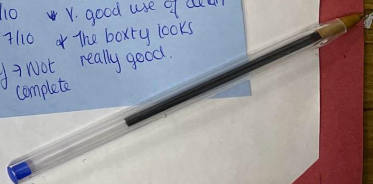 /10 * V. good use of
7/10 * The boxty looks
really good.
→ Not
complete